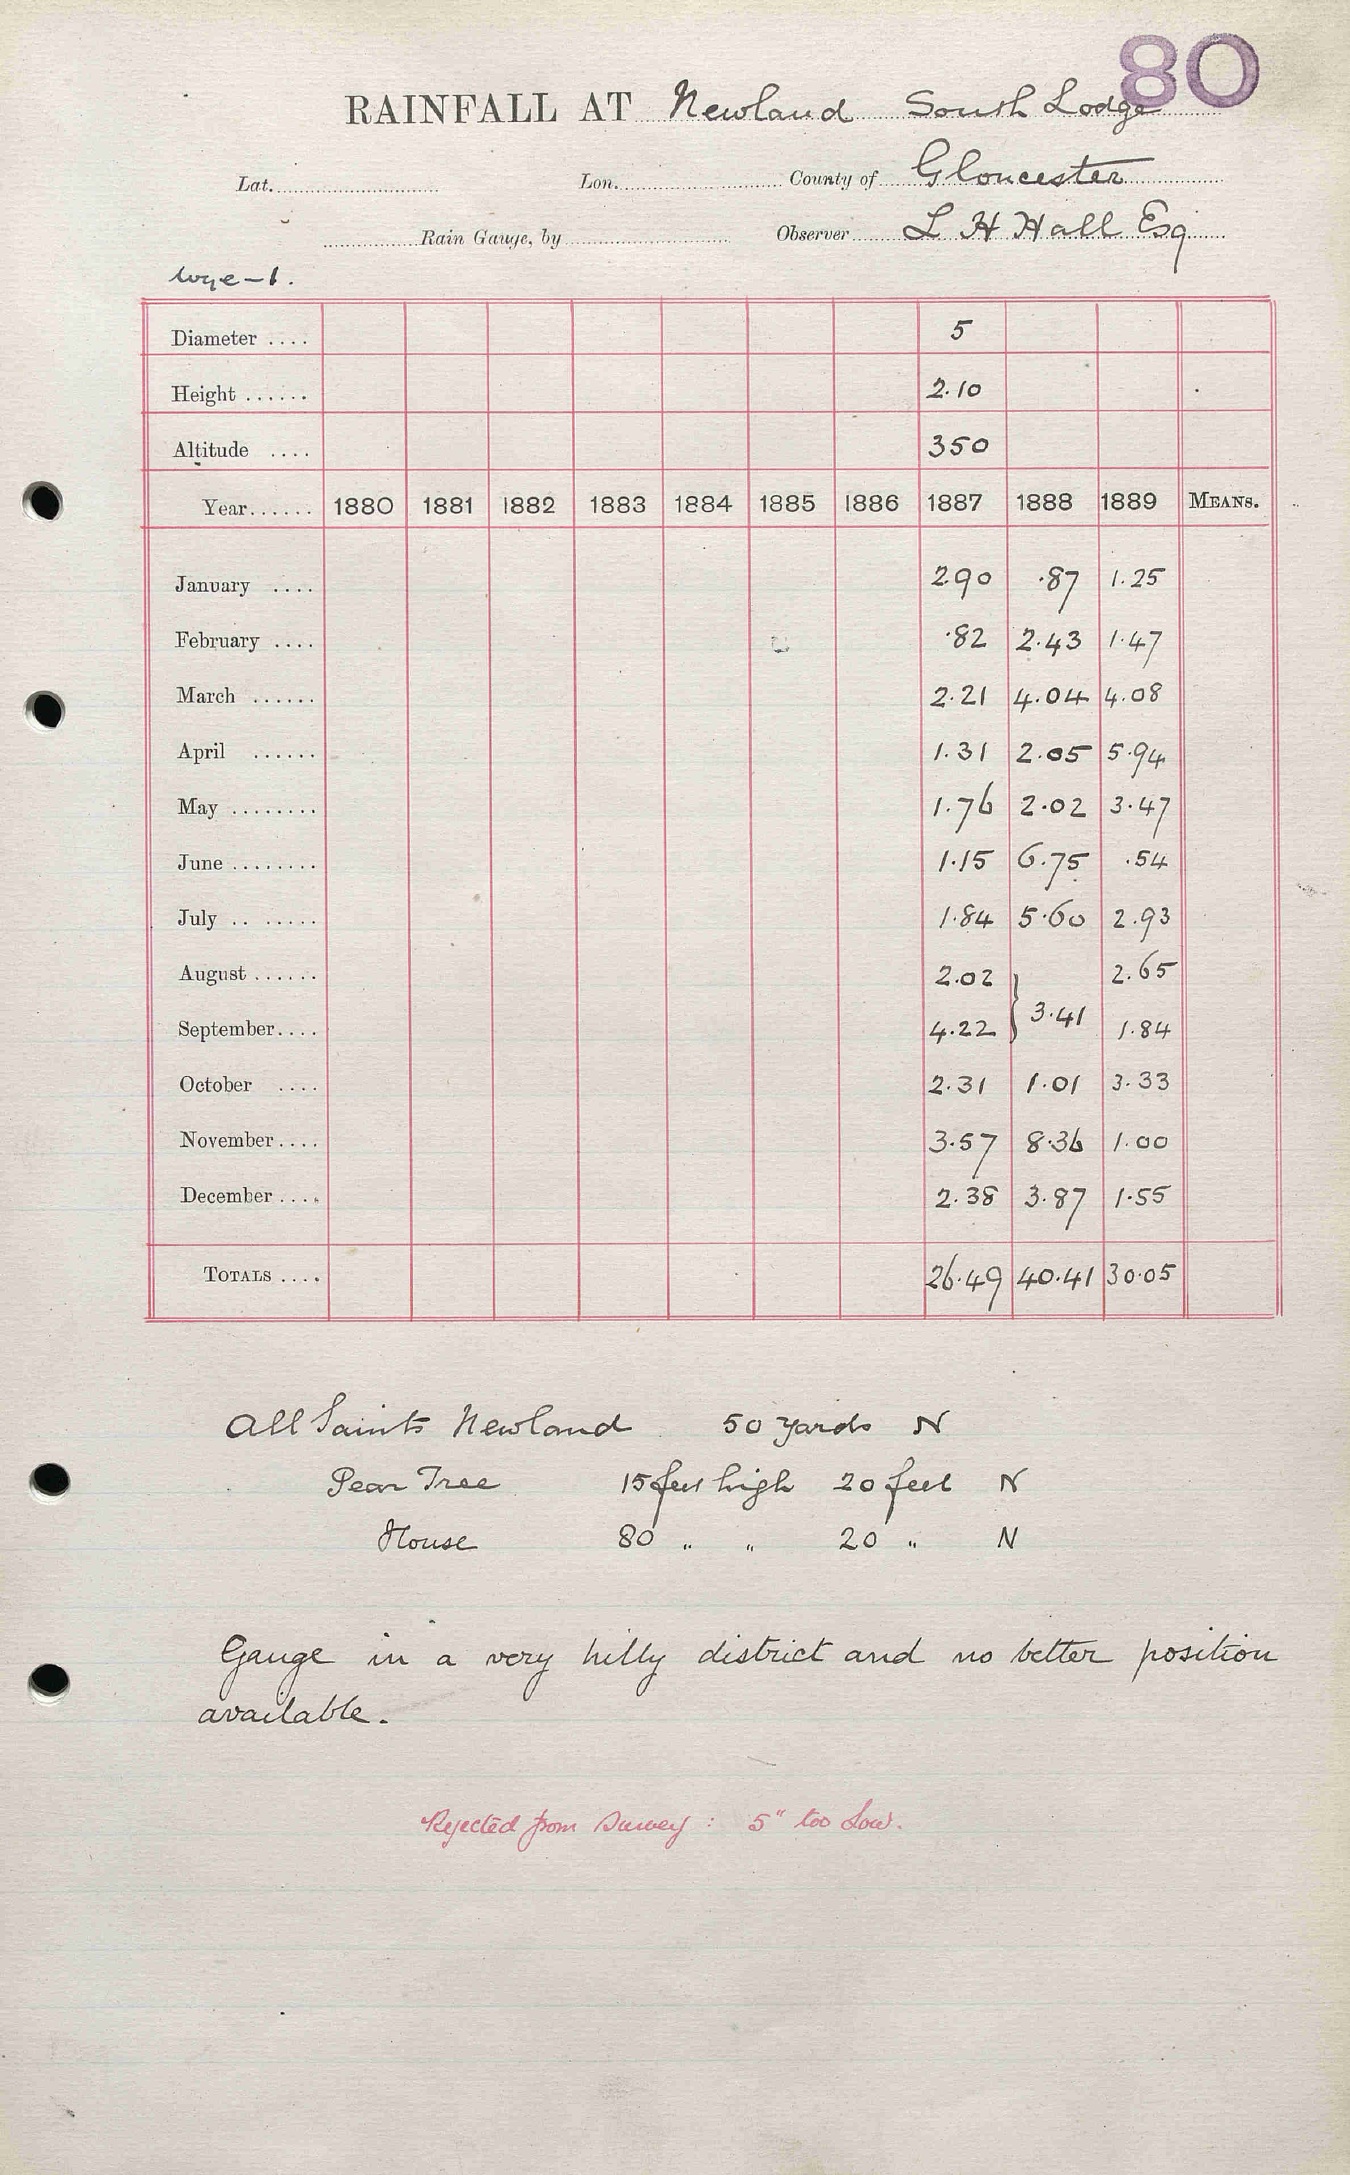 80
RAINFALL AT Newland South Lodge
Lat. Lon. County of Gloucester
Rain Gauge, by Observer L H Hall Esq
Wye - 1.
Diameter .... 5
Height ...... 2.10
Altitude .... 350
Year...... 1880 1881 1882 1883 1884 1885 1886 1887 1888 1889 MEANS.
January .... 2.90 .87 1.25
February .... .82 2.43 1.47
March ...... 2.21 4.04 4.08
April ...... 1.31 2.05 5.94
May ........ 1.76 2.02 3.47
June ........ 1.15 6.75 .54
July .. ...... 1.84 5.60 2.93
August ...... 2.02 } 2.65
September.... 4.22 } 3.41 1.84
October .... 2.31 1.01 3.33
November.... 3.57 8.36 1.00
December .... 2.38 3.87 1.55
TOTALS .... 26.49 40.41 30.05
All Saints Newland 50 yards N
Pear Tree 15 feet high 20 feet N
House 80 " " 20 " N
Gauge in a very hilly district and no better position
available.
Rejected from Survey : 5" too low.